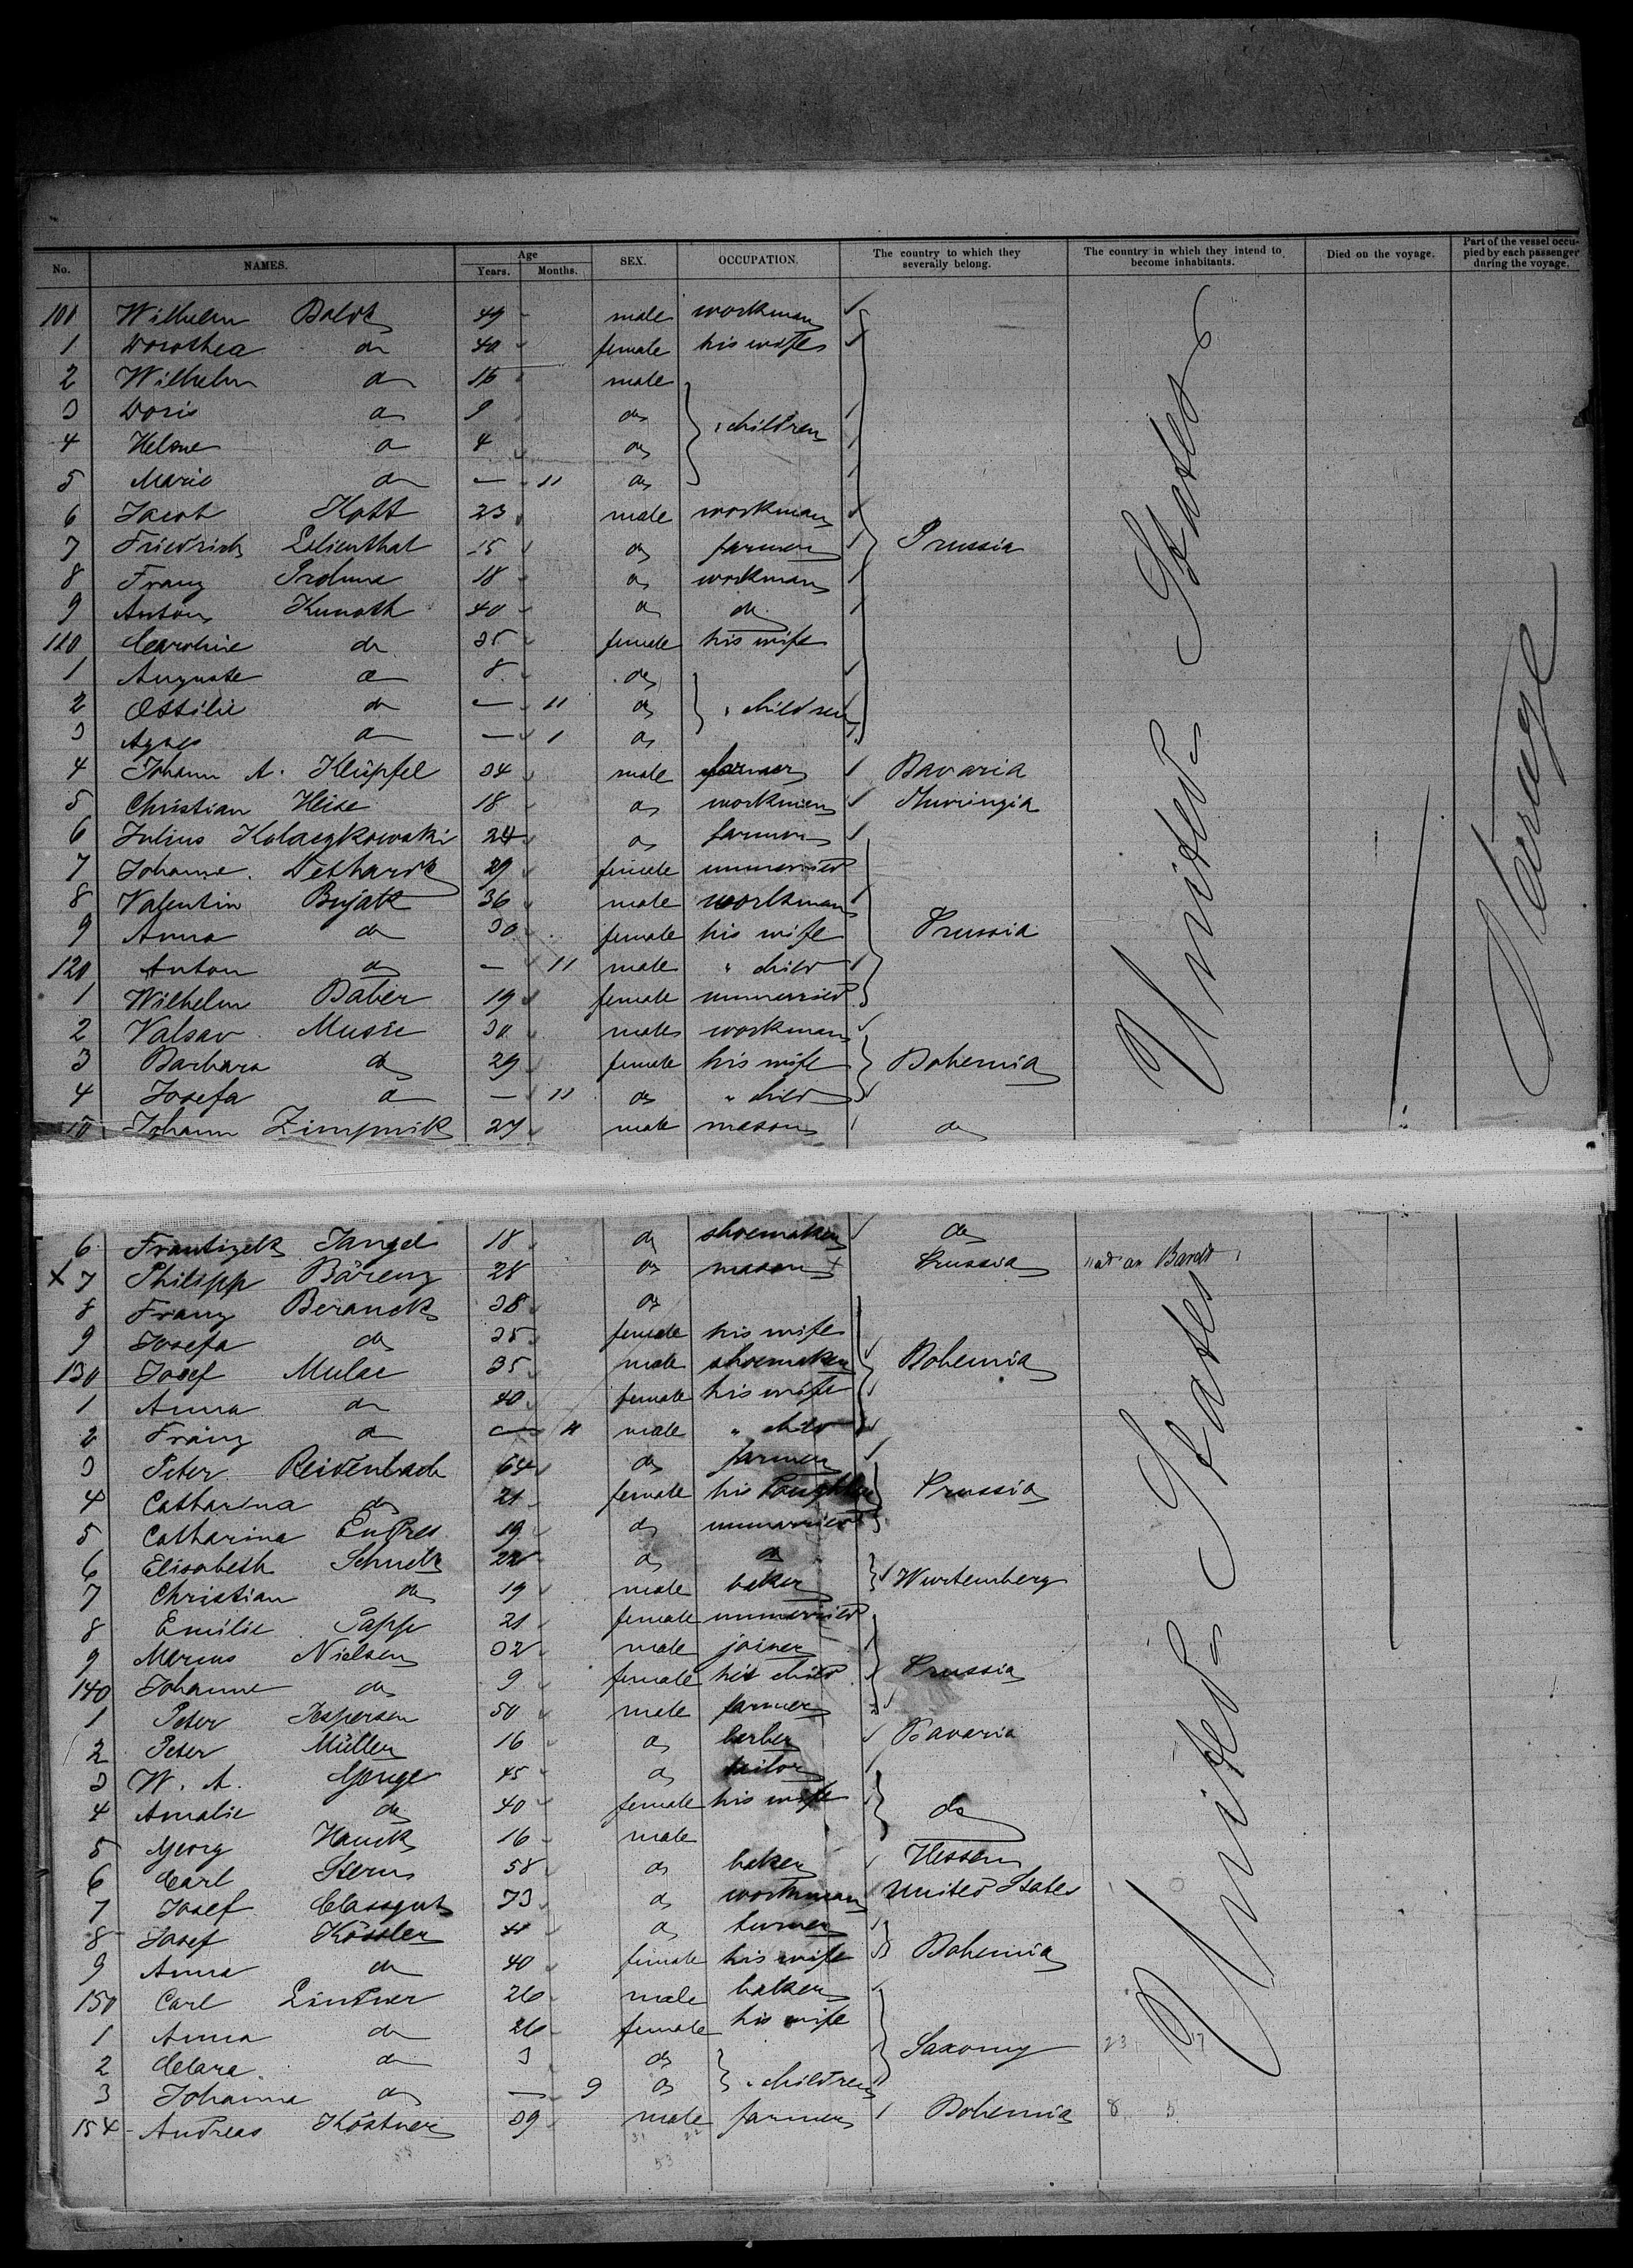 No. NAMES. Age Years. Months. SEX. OCCUPATION. The country to which they severally belong. The country in which they intend to become inhabitants. Died on the voyage. Part of the vessel occupied by each passenger during the voyage.
101 Wilhelm Boldt 49 male workman
1 Dorothea do 40 female his wife
2 Wilhelm do 16 male
3 Doris do 9 do
4 Helene do 4 do children
5 Marie do — 11 do
6 Jacob Kott 23 male workman
7 Friedrich Lilienthal 15 do farmer Prussia
8 Franz 18 do workman
9 Anton Kunath 40 do do
110 Caroline do 35 female his wife
1 Auguste do 8 do
2 Ottilie do — 11 do children
3 Agnes do — 1 do
4 Johann A. Klüpfel 34 male farmer Bavaria
5 Christian Heise 18 do workman Thuringia
6 Julius Kolaczkowski 24 do farmer
7 Johanne Dethardt 29 female unmarried
8 Valentin Bujak 36 male workman
9 Anna do 30 female his wife Prussia
120 Anton do — 11 male " child
1 Wilhelm Baber 19 female unmarried
2 Valsav Musie 30 male workman
3 Barbara do 29 female his wife Bohemia
4 Josefa do — 11 do " child
5 Johann Zimpnik 27 male mason do
United States
Steerage
6 Frantizek Jangel 18 do shoemaker do
X 7 Philipp Bärenz 28 do mason Prussia
8 Franz Beranek 38 do
9 Josefa do 35 female his wife
130 Josef Mulac 35 male shoemaker Bohemia
1 Anna do 40 female his wife
2 Franz do — 11 male " child
3 Peter Reidenbach 64 do farmer
4 Catharina do 21 female his daughter Prussia
5 Catharina Endres 19 do unmarried
6 Elisabeth Schuetz 22 do do
7 Christian do 19 male baker Wurtemberg
8 Emilie Papp 21 female unmarried
9 Marius Nielsen 32 male joiner
140 Johanne do 9 female his child Prussia
1 Peter Jespersen 50 male farmer
2 Peter Müller 16 do barber Bavaria
3 W. A. Gorge 45 do tailor
4 Amalie do 40 female his wife do
5 Georg Hauck 16 male
6 Carl Stern 58 do baker Hessen
7 Josef Classgut 73 do workman United States
8 Josef Kössler do turner
9 Anna do 40 female his wife Bohemia
150 Carl Lindner 26 male baker
1 Anna do 26 female his wife
2 Clara do 3 do Saxony
3 Johanna do — 9 do children
154 Andreas Köstner 39 male farmer Bohemia
United States